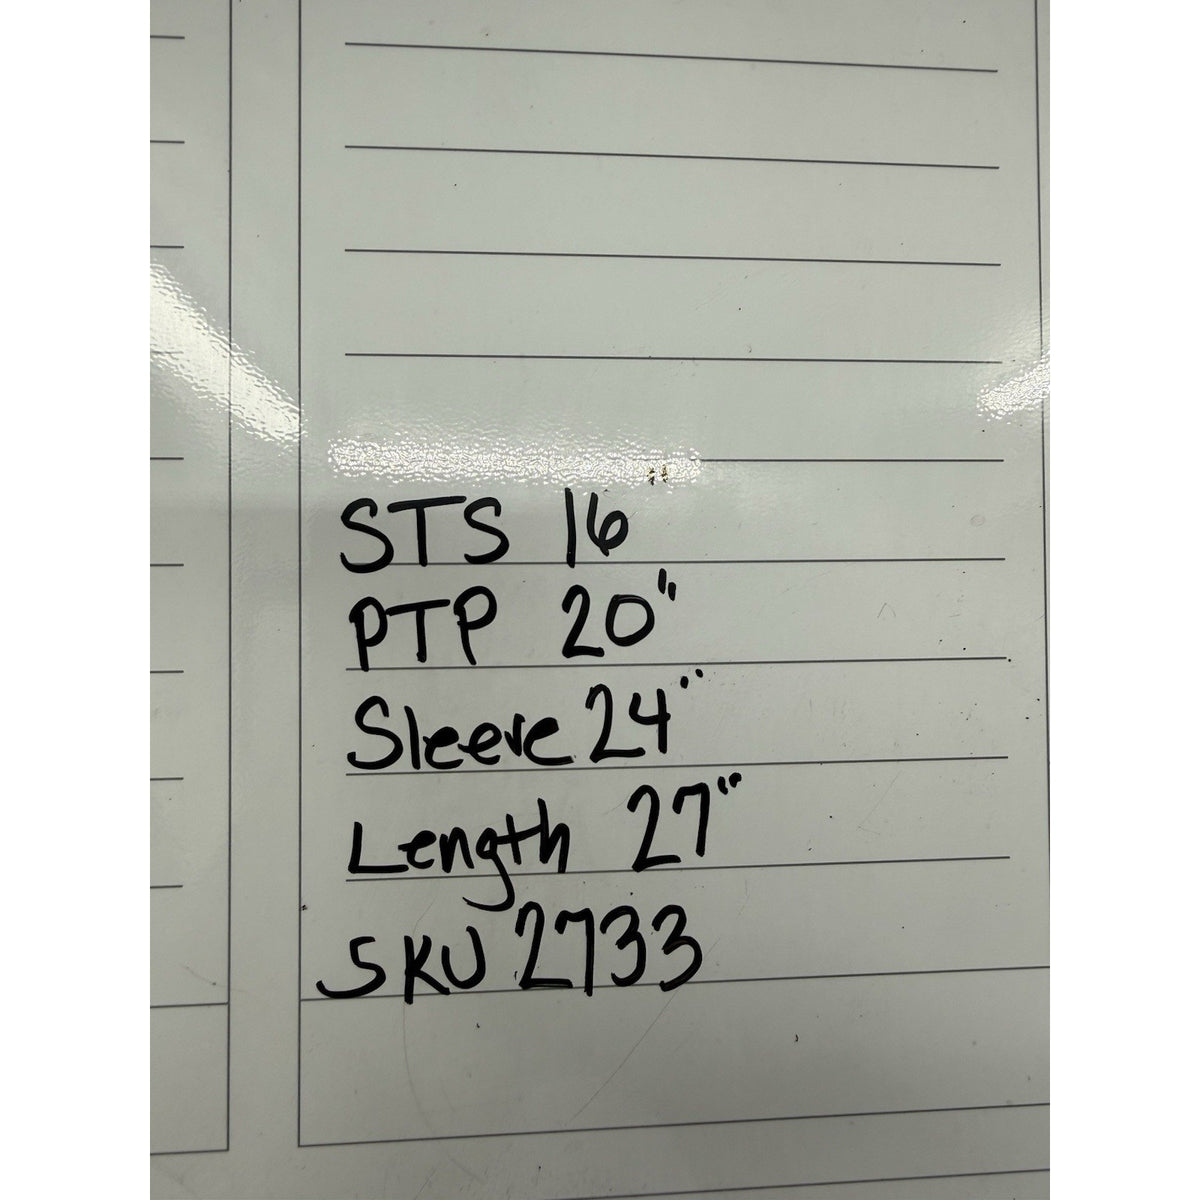 STS 16"
PTP 20"
Sleeve 24"
Length 27"
SKU 2733